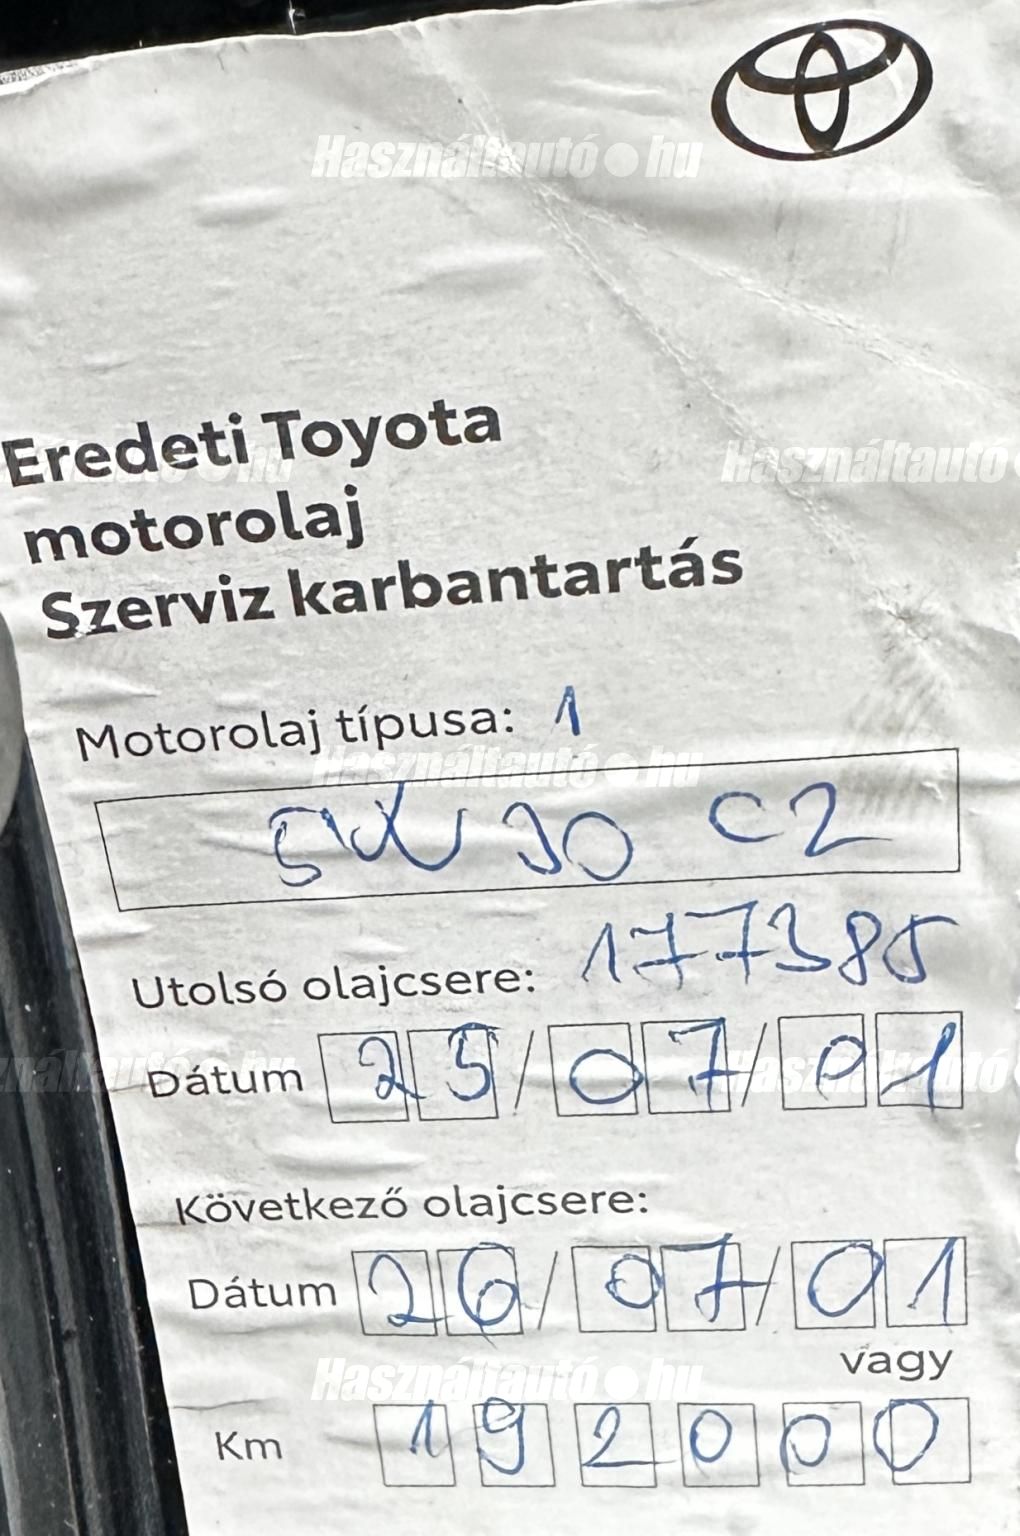 Használtautó.hu
Használtautó
Eredeti Toyota
motorolaj
Szerviz karbantartás
Motorolaj típusa: 1
Használtautó.hu
5W 30 C2
Utolsó olajcsere: 177385
Dátum 25/07/01
Következő olajcsere:
Dátum 26/07/01
vagy
Használtautó.hu
Km 192000